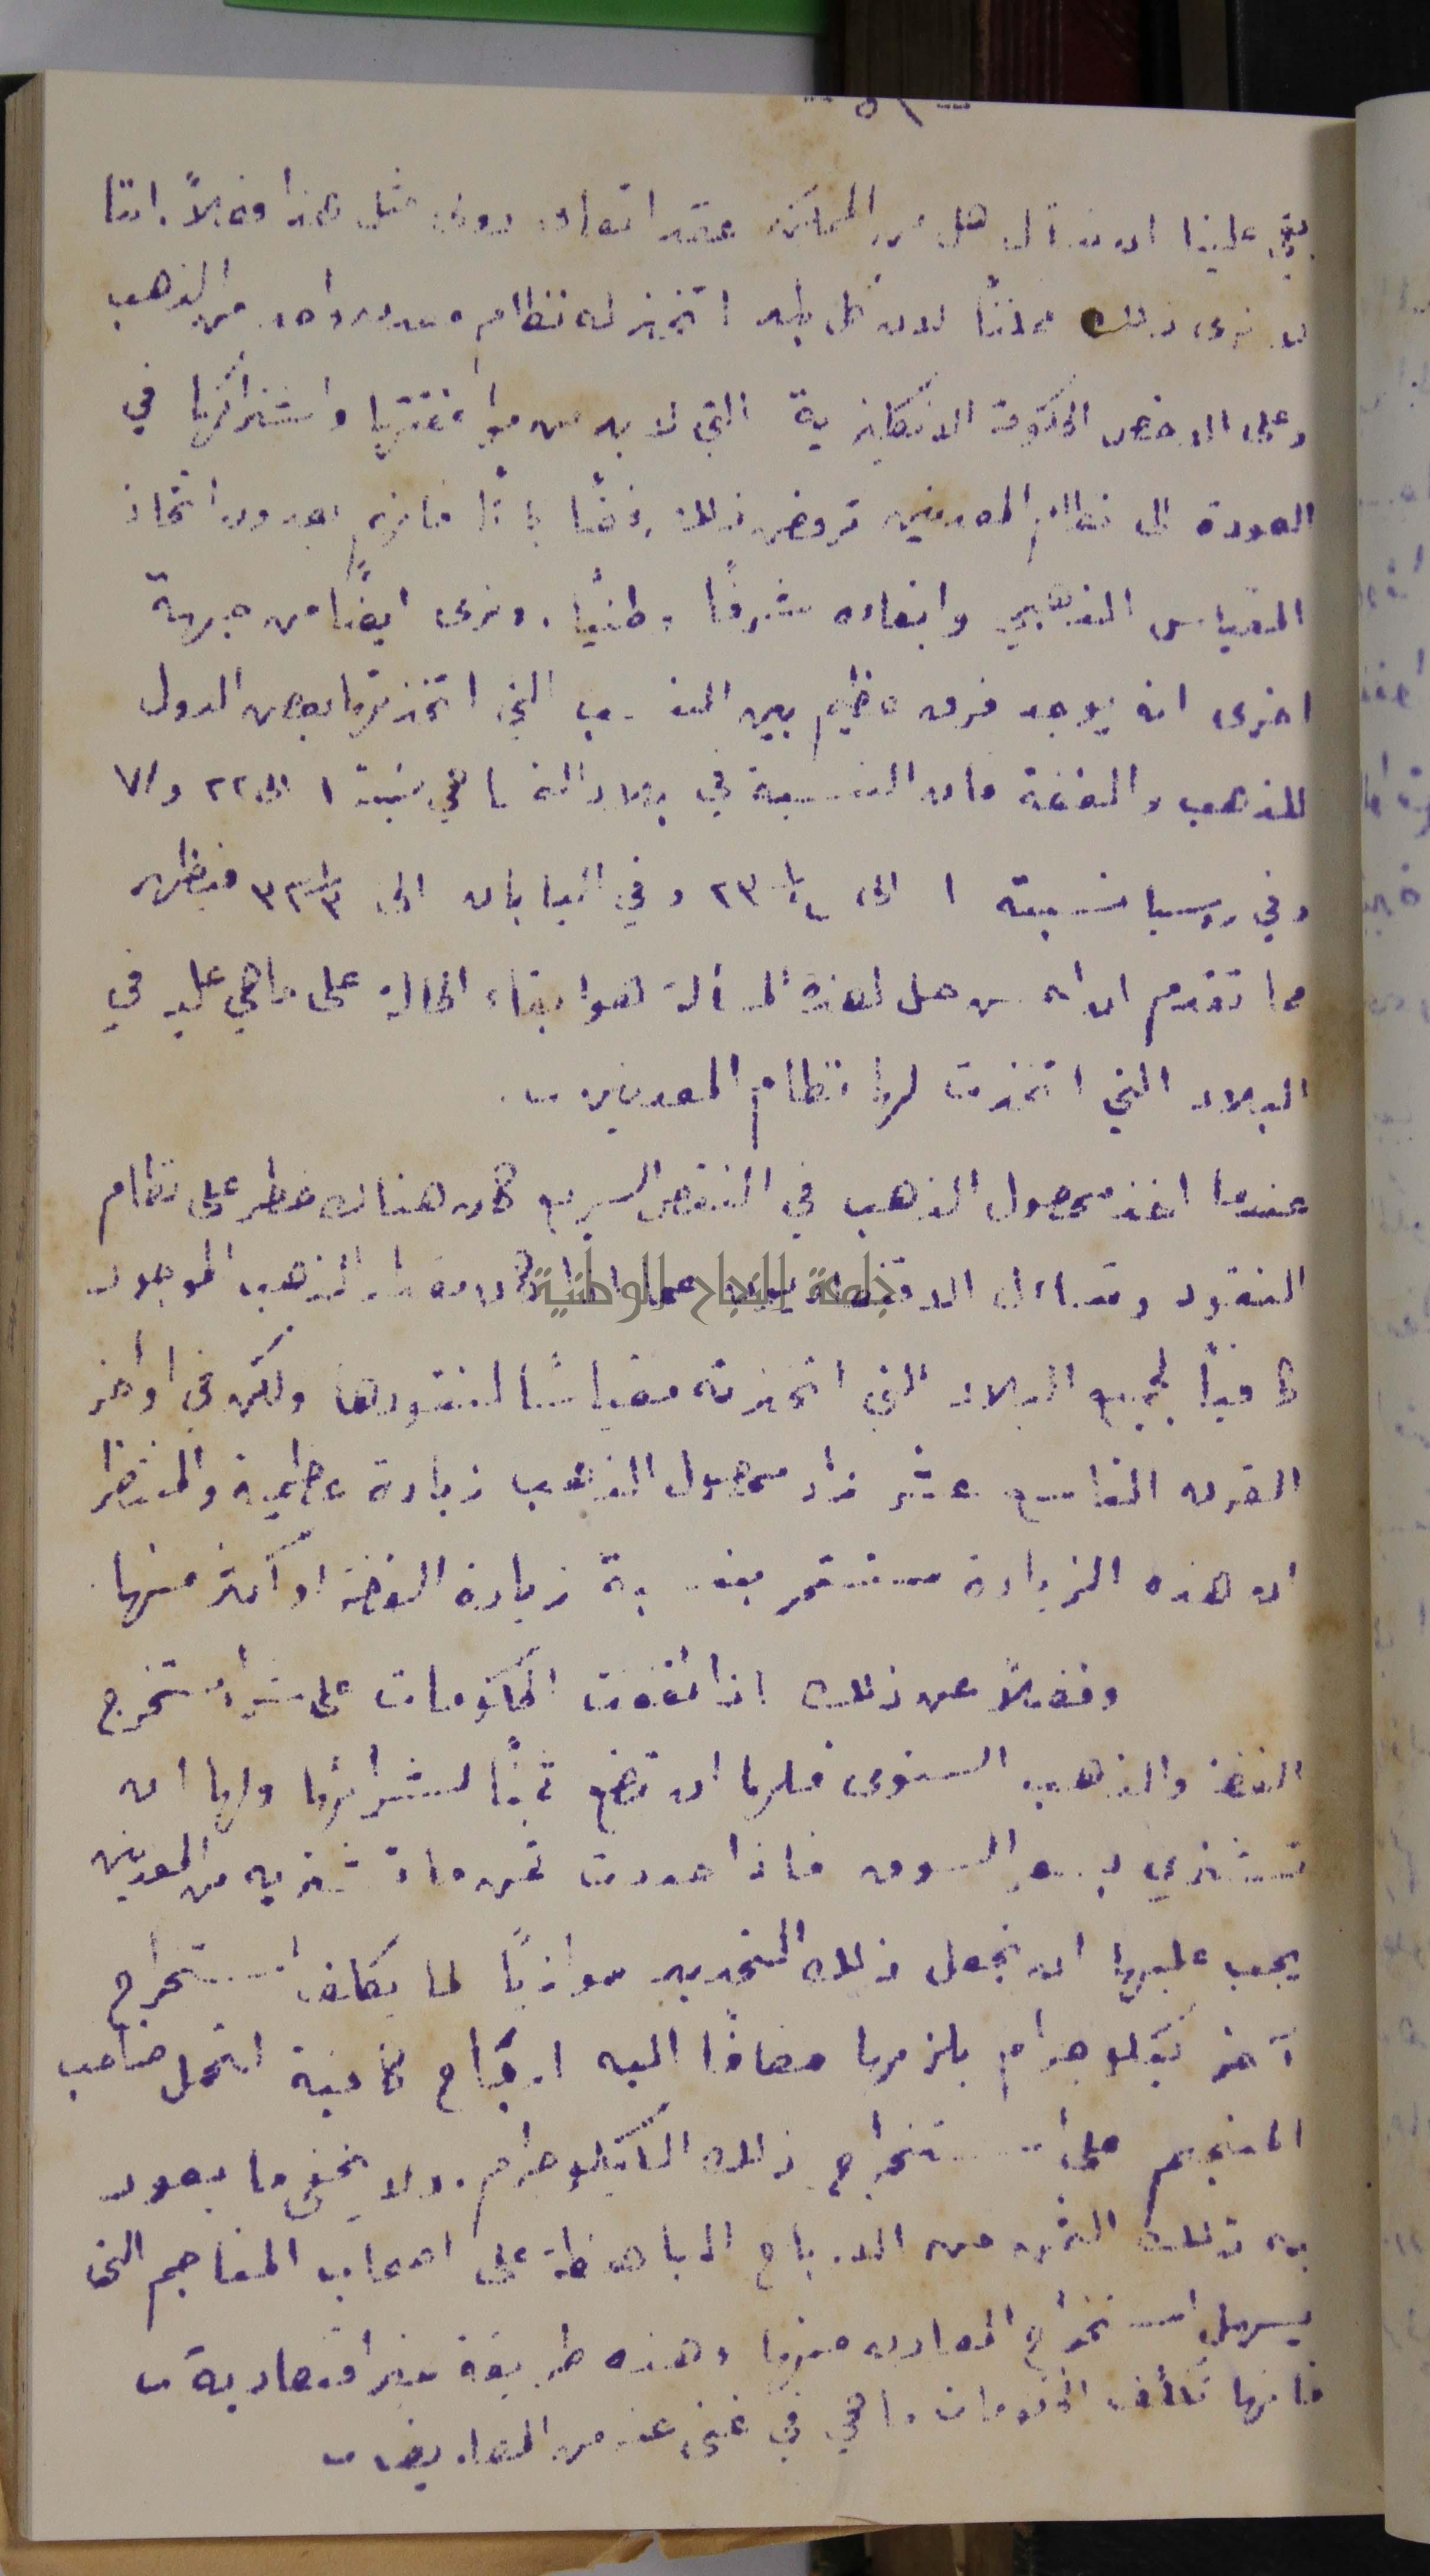 بقي علينا ان نسأل هل من الممكن عقد اتفاق دولي مثل هذا فضلاً اننا
لا نرى ذلك ممكناً لان كل بلد اتخذ له نظام معدن واحد من الذهب
وعلى الاخص الحكومة الانكليزية التي لا بد من موافقتها واشتراكها في
العودة الى نظام المعدنين ترفض ذلك رفضًا باتًا فانهم يعدون اتخاذ
المقياس الذهبي وابقاده شرفًا وطنيًا . ونرى ايضًا من جهة
اخرى انه يوجد فرق عظيم بين النسب التي اتخذتها بعض الدول
للذهب والفضة فان النسبة في بلاد النمسا هي نسبة ١ الى ٢٢ و٧١
وفي روسيا نسبة ١ الى ٢٣ وفي اليابان الى ٣٢ فيظهر
مما تقدم ان احسن حل لهذه المسألة هو ابقاء الحالة على ما هي عليه في
البلاد التي اتخذت لها نظام المعدنين .
عندما اخذ محصول الذهب في النقص السريع كان هناك خطر على نظام
النقود وتساءل الاقتصاديون عما اذا كان مقدار الذهب الموجود
كافيًا لجميع البلاد التي اتخذته مقياسًا لنقودها ولكن في اواخر
القرن التاسع عشر زاد محصول الذهب زيادة عظيمة والمنتظر
ان هذه الزيادة ستستمر بنسبة زيادة الفضة او اكثر منها .
وفضلاً عن ذلك اذا اتفقت الحكومات على شراء مستخرج
الفضة والذهب السنوي فلها ان تضع ثمنًا لشرائها ولها ان
تشتري بسعر السوق فاذا حددت ثمن ما تشتريه من المعدنين
يجب عليها ان تجعل ذلك التحديد موازيًا لما يكلف استخراج
آخر كيلوجرام يلزمها مضافًا اليه ارباح كافية لتحمل صاحب
المنجم على استخراج ذلك الكيلوجرام . ولا يخفى ما يعود
به ذلك الثمن من الارباح الباهظة على اصحاب المناجم التي
يسهل استخراج المعادن منها وهذه طريقة غير اقتصادية
فانها تكلف الحكومات ما هي في غنى عنه من المصاريف
جامعة النجاح الوطنية